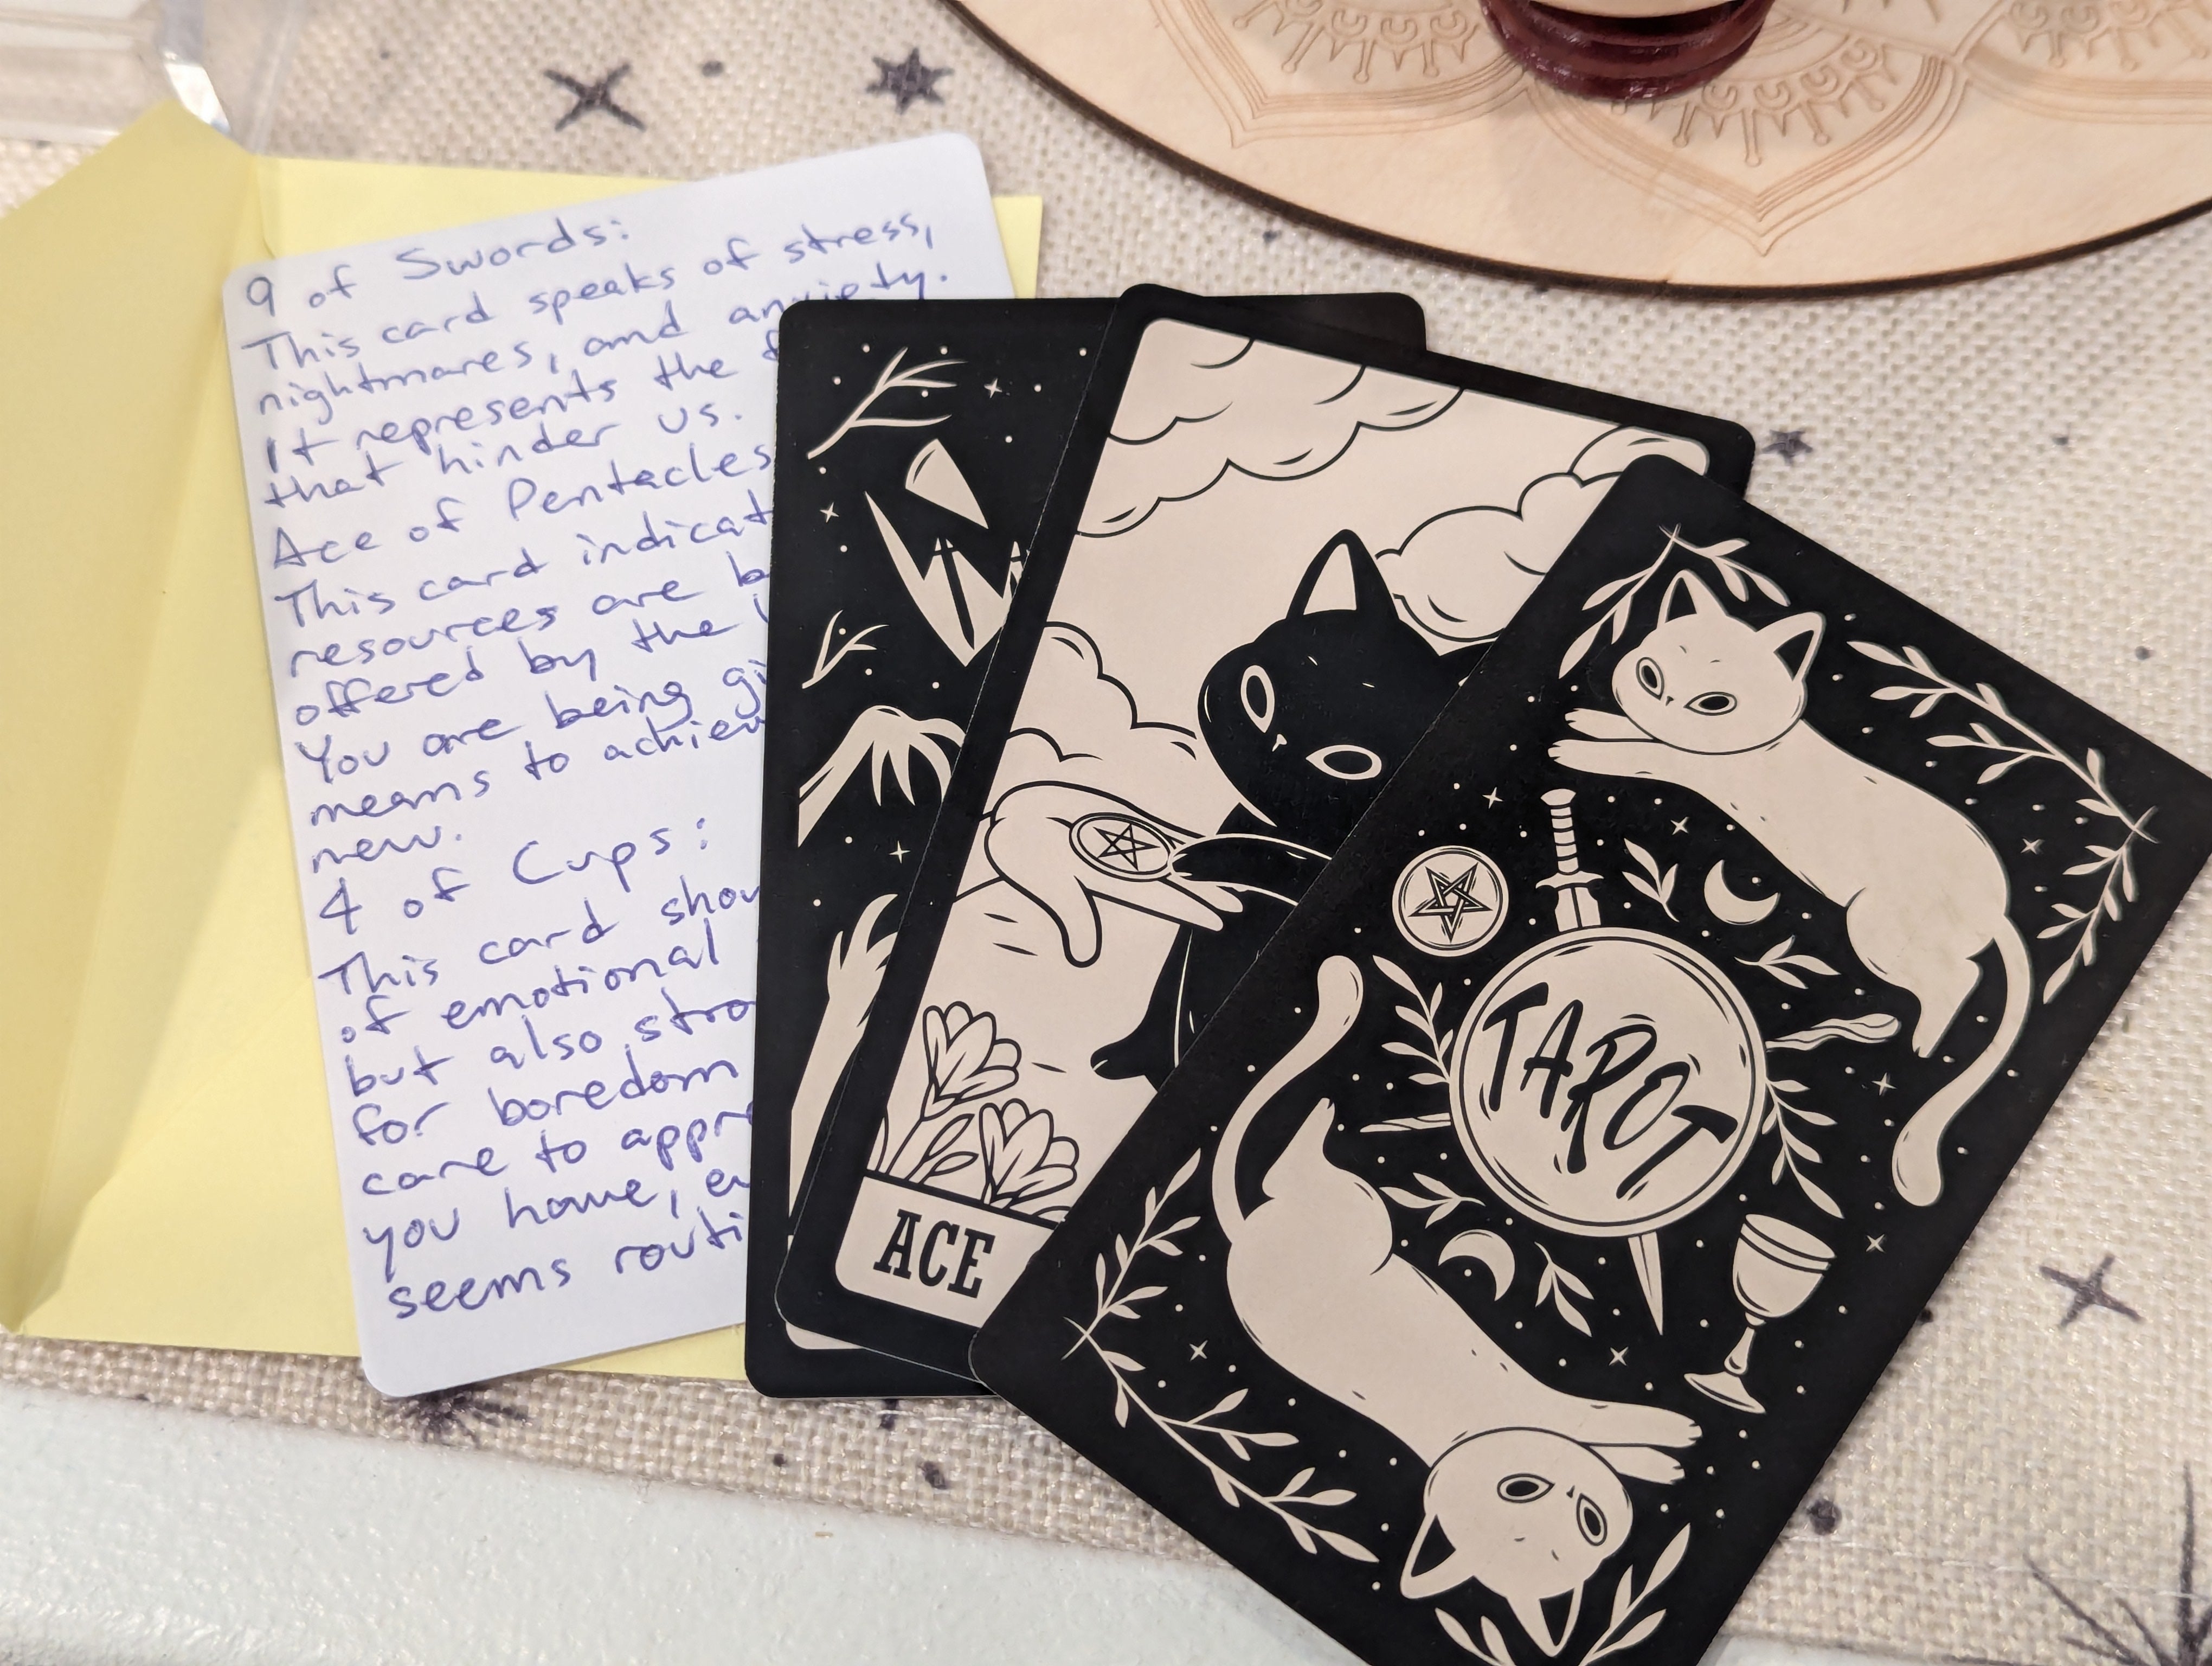 9 of Swords:
This card speaks of stress,
nightmares, and anxiety.
It represents the
that hinder us.
Ace of Pentacles
This card
resources are
offered by the
You are being
means to
new.
4 of Cups:
This card
of emotional
but also
for boredom
care to
you have,
seems
ACE
TAROT